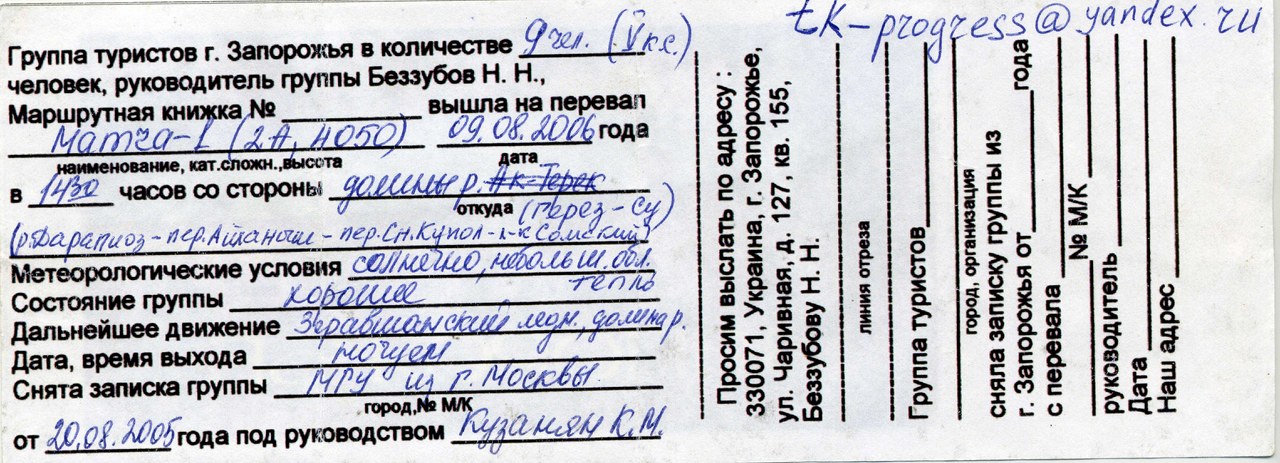 Группа туристов г. Запорожья в количестве 9 чел. (V к.с.)
человек, руководитель группы Беззубов Н. Н.,
Маршрутная книжка № вышла на перевал
Матча-1 (2А, 4050) 09.08.2006 года
наименование, кат.сложн.,высота дата
в 1430 часов со стороны долины р. Ак-Терек
откуда (Перез-Су)
(р. Дараипиоз - пер. - пер. Сн. Купол - л-к Сомский)
Метеорологические условия солнечно, небольш. обл.
тепло
Состояние группы хорошее
Дальнейшее движение Зеравшанский ледн., долина р.
Дата, время выхода ночуем
Снята записка группы МГУ из г. Москвы
город,№ М/К
от 20.08.2005 года под руководством Кузанян К.М.
tk-progress@yandex.ru
Просим выслать по адресу :
330071, Украина, г. Запорожье,
ул. Чаривная, д. 127, кв. 155,
Беззубову Н. Н.
линия отреза
Группа туристов
город, организация
сняла записку группы из
г. Запорожья от года
с перевала
№ М/К
руководитель
Дата
Наш адрес